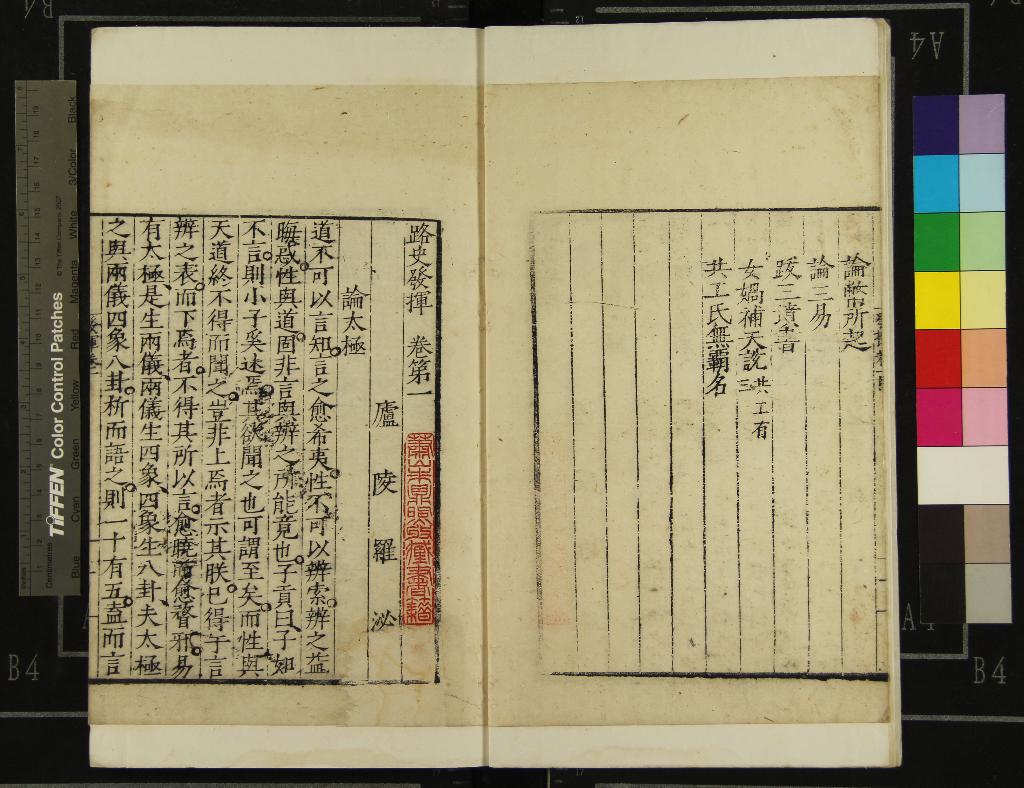 論幣所起
論三易
跋三墳書
女媧補天説 共工有三
共工氏無霸名
路史發揮 卷第一
廬陵羅泌
論太極
道不可以言知言之愈希夷性不可以辨索辨之益
晦惑性與道固非言與辨之所能竟也子貢曰子如
不言則小子奚述焉其欲聞之也可謂至矣而性與
天道終不得而聞之豈非上焉者示其朕已得于言
辨之表而下焉者不得其所以言愈曉愈瞀邪易
有太極是生兩儀兩儀生四象四象生八卦夫太極
之與兩儀四象八卦析而語之則一十有五蓋而言
TIFFEN Color Control Patches
© The Tiffen Company, 2007
Centimetres
Inches
Blue
Cyan
Green
Yellow
Red
Magenta
White
3/Color
Black
A4
A4
B4
B4